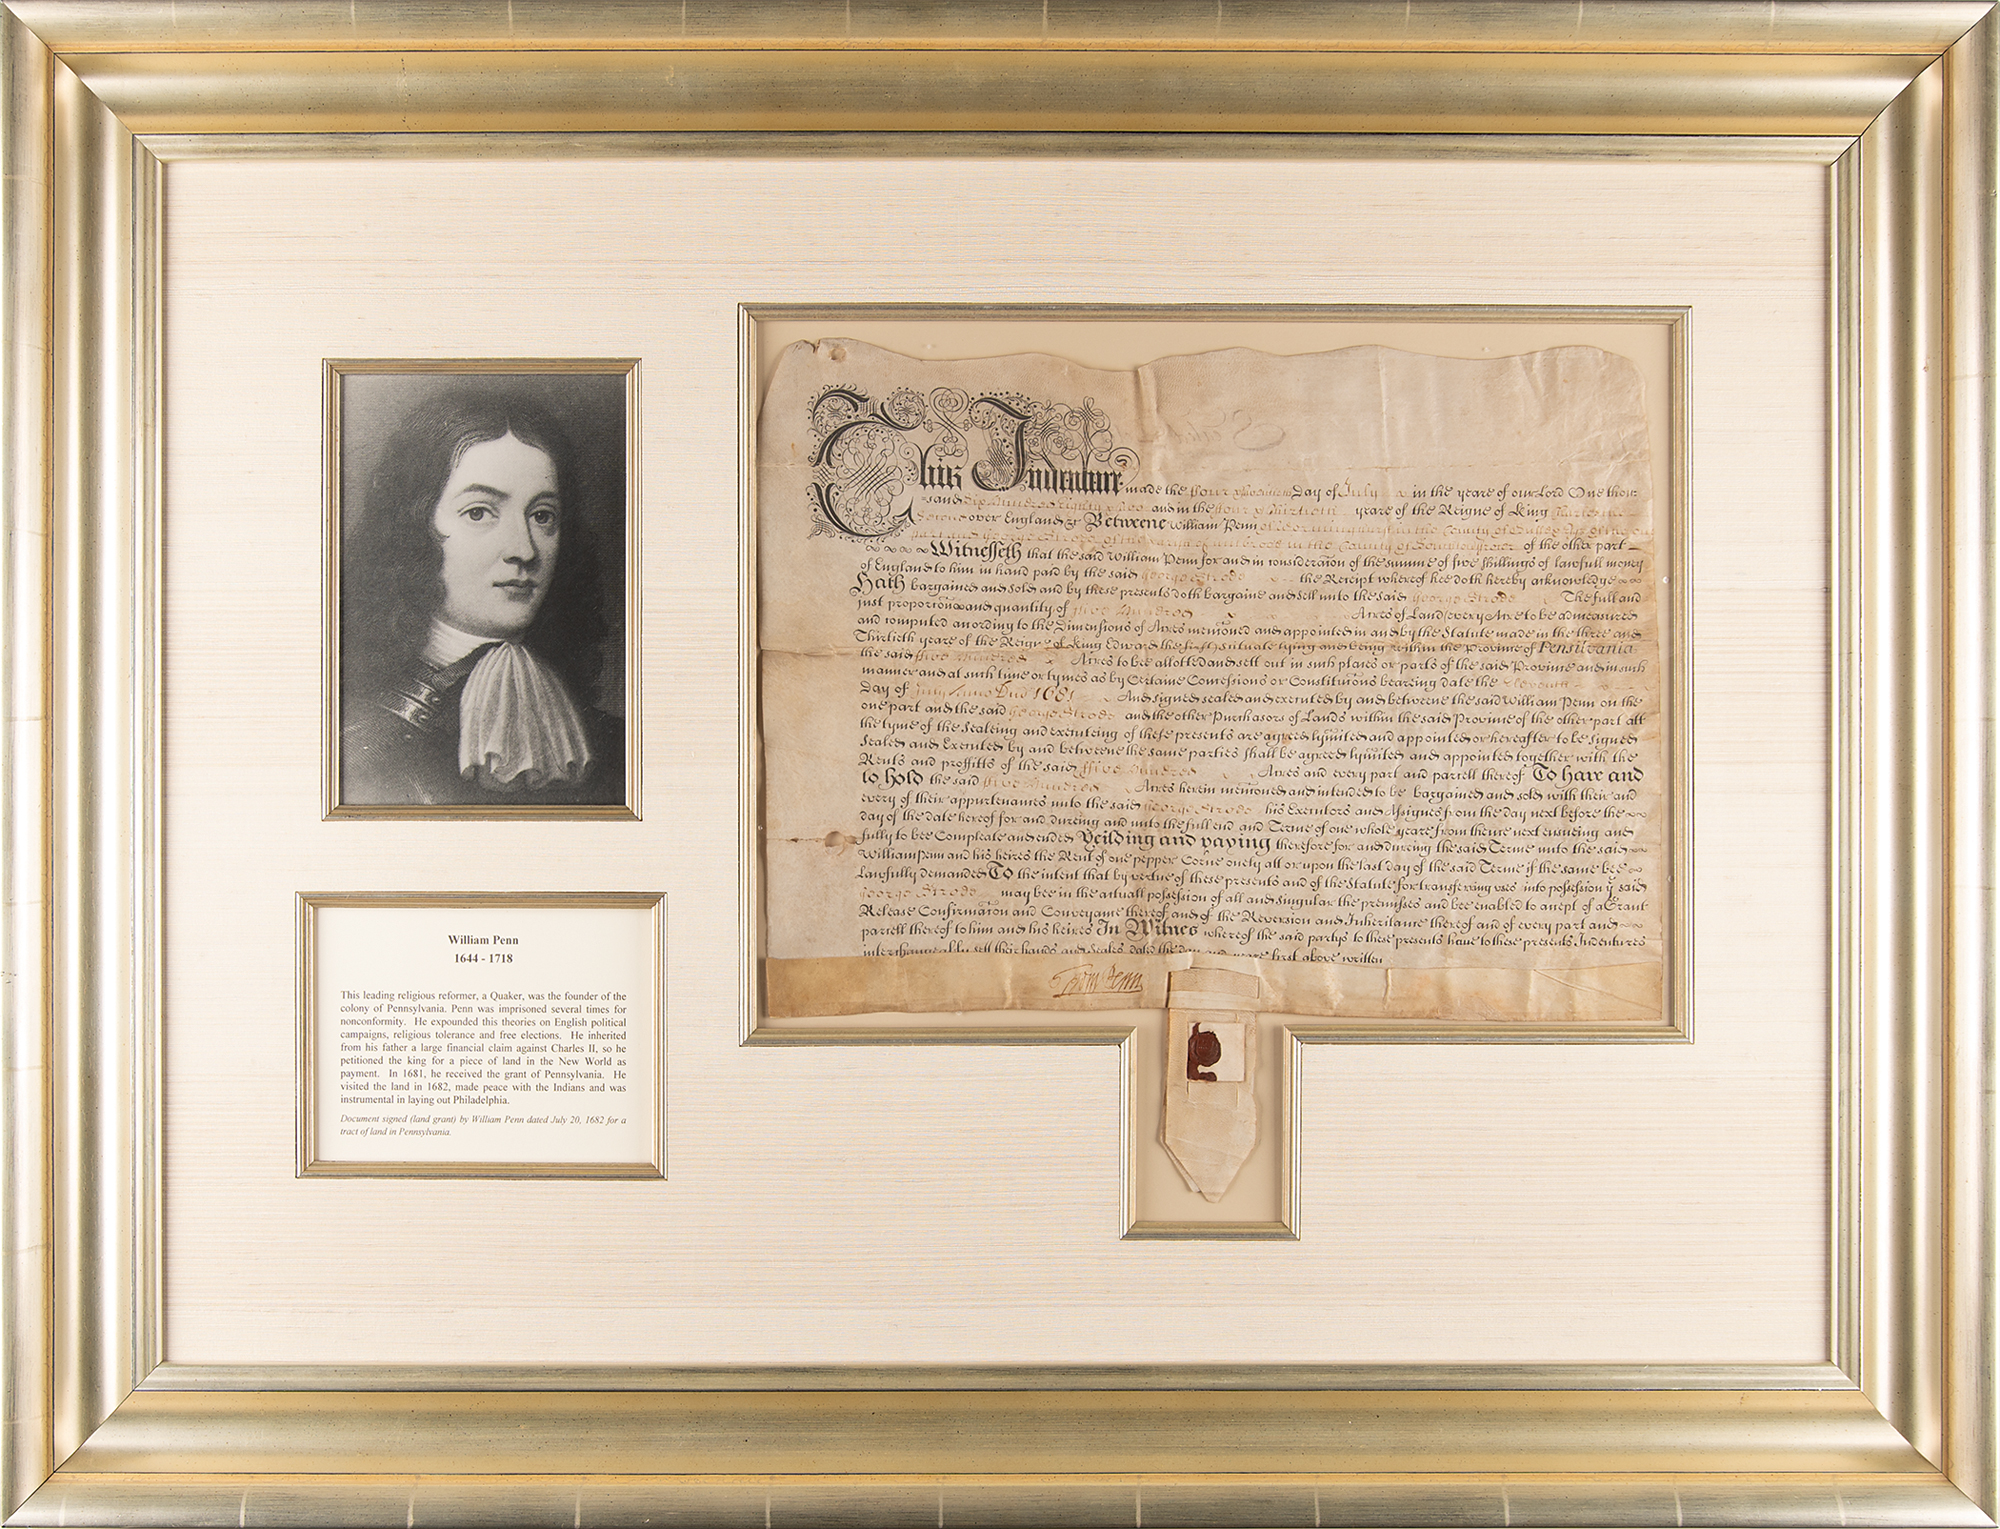 William Penn
1644 - 1718
This leading religious reformer, a Quaker, was the founder of the
colony of Pennsylvania. Penn was imprisoned several times for
nonconformity. He expounded this theories on English political
campaigns, religious tolerance and free elections. He inherited
from his father a large financial claim against Charles II, so he
petitioned the king for a piece of land in the New World as
payment. In 1681, he received the grant of Pennsylvania. He
visited the land in 1682, made peace with the Indians and was
instrumental in laying out Philadelphia.
Document signed (land grant) by William Penn dated July 20, 1682 for a
tract of land in Pennsylvania.
This Indenture made the Day of July in the yeare of our Lord One thou
sand Six Hundred Eighty & Two and in the yeare of the Reigne of King
Second over England &c Betweene William Penn of in the County of Sussex
of the other part
Witnesseth that the said William Penn for and in consideration of the summe of five Shillings of lawfull money
of England to him in hand paid by the said George Strode the Receipt whereof hee doth hereby acknowledge
Hath bargained and sold and by these presents doth bargaine and sell unto the said George Strode The full and
just proportion and quantity of five Hundred Acres of Land every Acre to be admeasured
and computed according to the Dimensions of Acres menconed and appointed in and by the Statute made in the three and
Thirtieth yeare of the Reigne of King Edward the first scituate lying and being within the Province of Pensilvania
the said five Hundred Acres to bee allotted and sett out in such places or parts of the said Province and in such
manner and at such time or tymes as by Certaine Concessions or Constitucons bearing date the Eleventh
Day of July Anno Dnd 1681 And signed sealed and executed by and betweene the said William Penn on the
one part and the said George Strode and the other Purchasors of Lands within the said Province of the other part att
the tyme of the Sealeing and executeing of these presents are agreed lymited and appointed or hereafter to be signed
Sealed and Executed by and betweene the same parties shall be agreed lymited and appointed together with the
Rents and proffitts of the said ffive Hundred Acres and every part and parcell thereof To have and
to hold the said ffive Hundred Acres herein mencioned and intended to be bargained and sold with their and
every of their appurtenances unto the said George Strode his Executors and Assignes from the day next before the
day of the date hereof for and dureing and unto the full end and Terme of one whole yeare from thence next ensueing and
fully to bee Compleate and ended Yeilding and paying therefore for and during the said Terme unto the said
William Penn and his heires the Rent of one pepper Corne onely att or upon the last day of the said Terme if the same bee
Lawfully demanded To the intent that by vertue of these presents and of the Statute for transferring uses into possession ye said
George Strode may bee in the actuall possession of all and singular the premisses and bee enabled to accept of a Grant
Release Confirmacon and Conveyance thereof and of the Reversion and Inheritance thereof and of every part and
parcell thereof to him and his heires In Witnes whereof the said partys to these presents have to these presents Indentures
interchangeably sett their hands and Seales dated the day and yeare first above written
Wm Penn